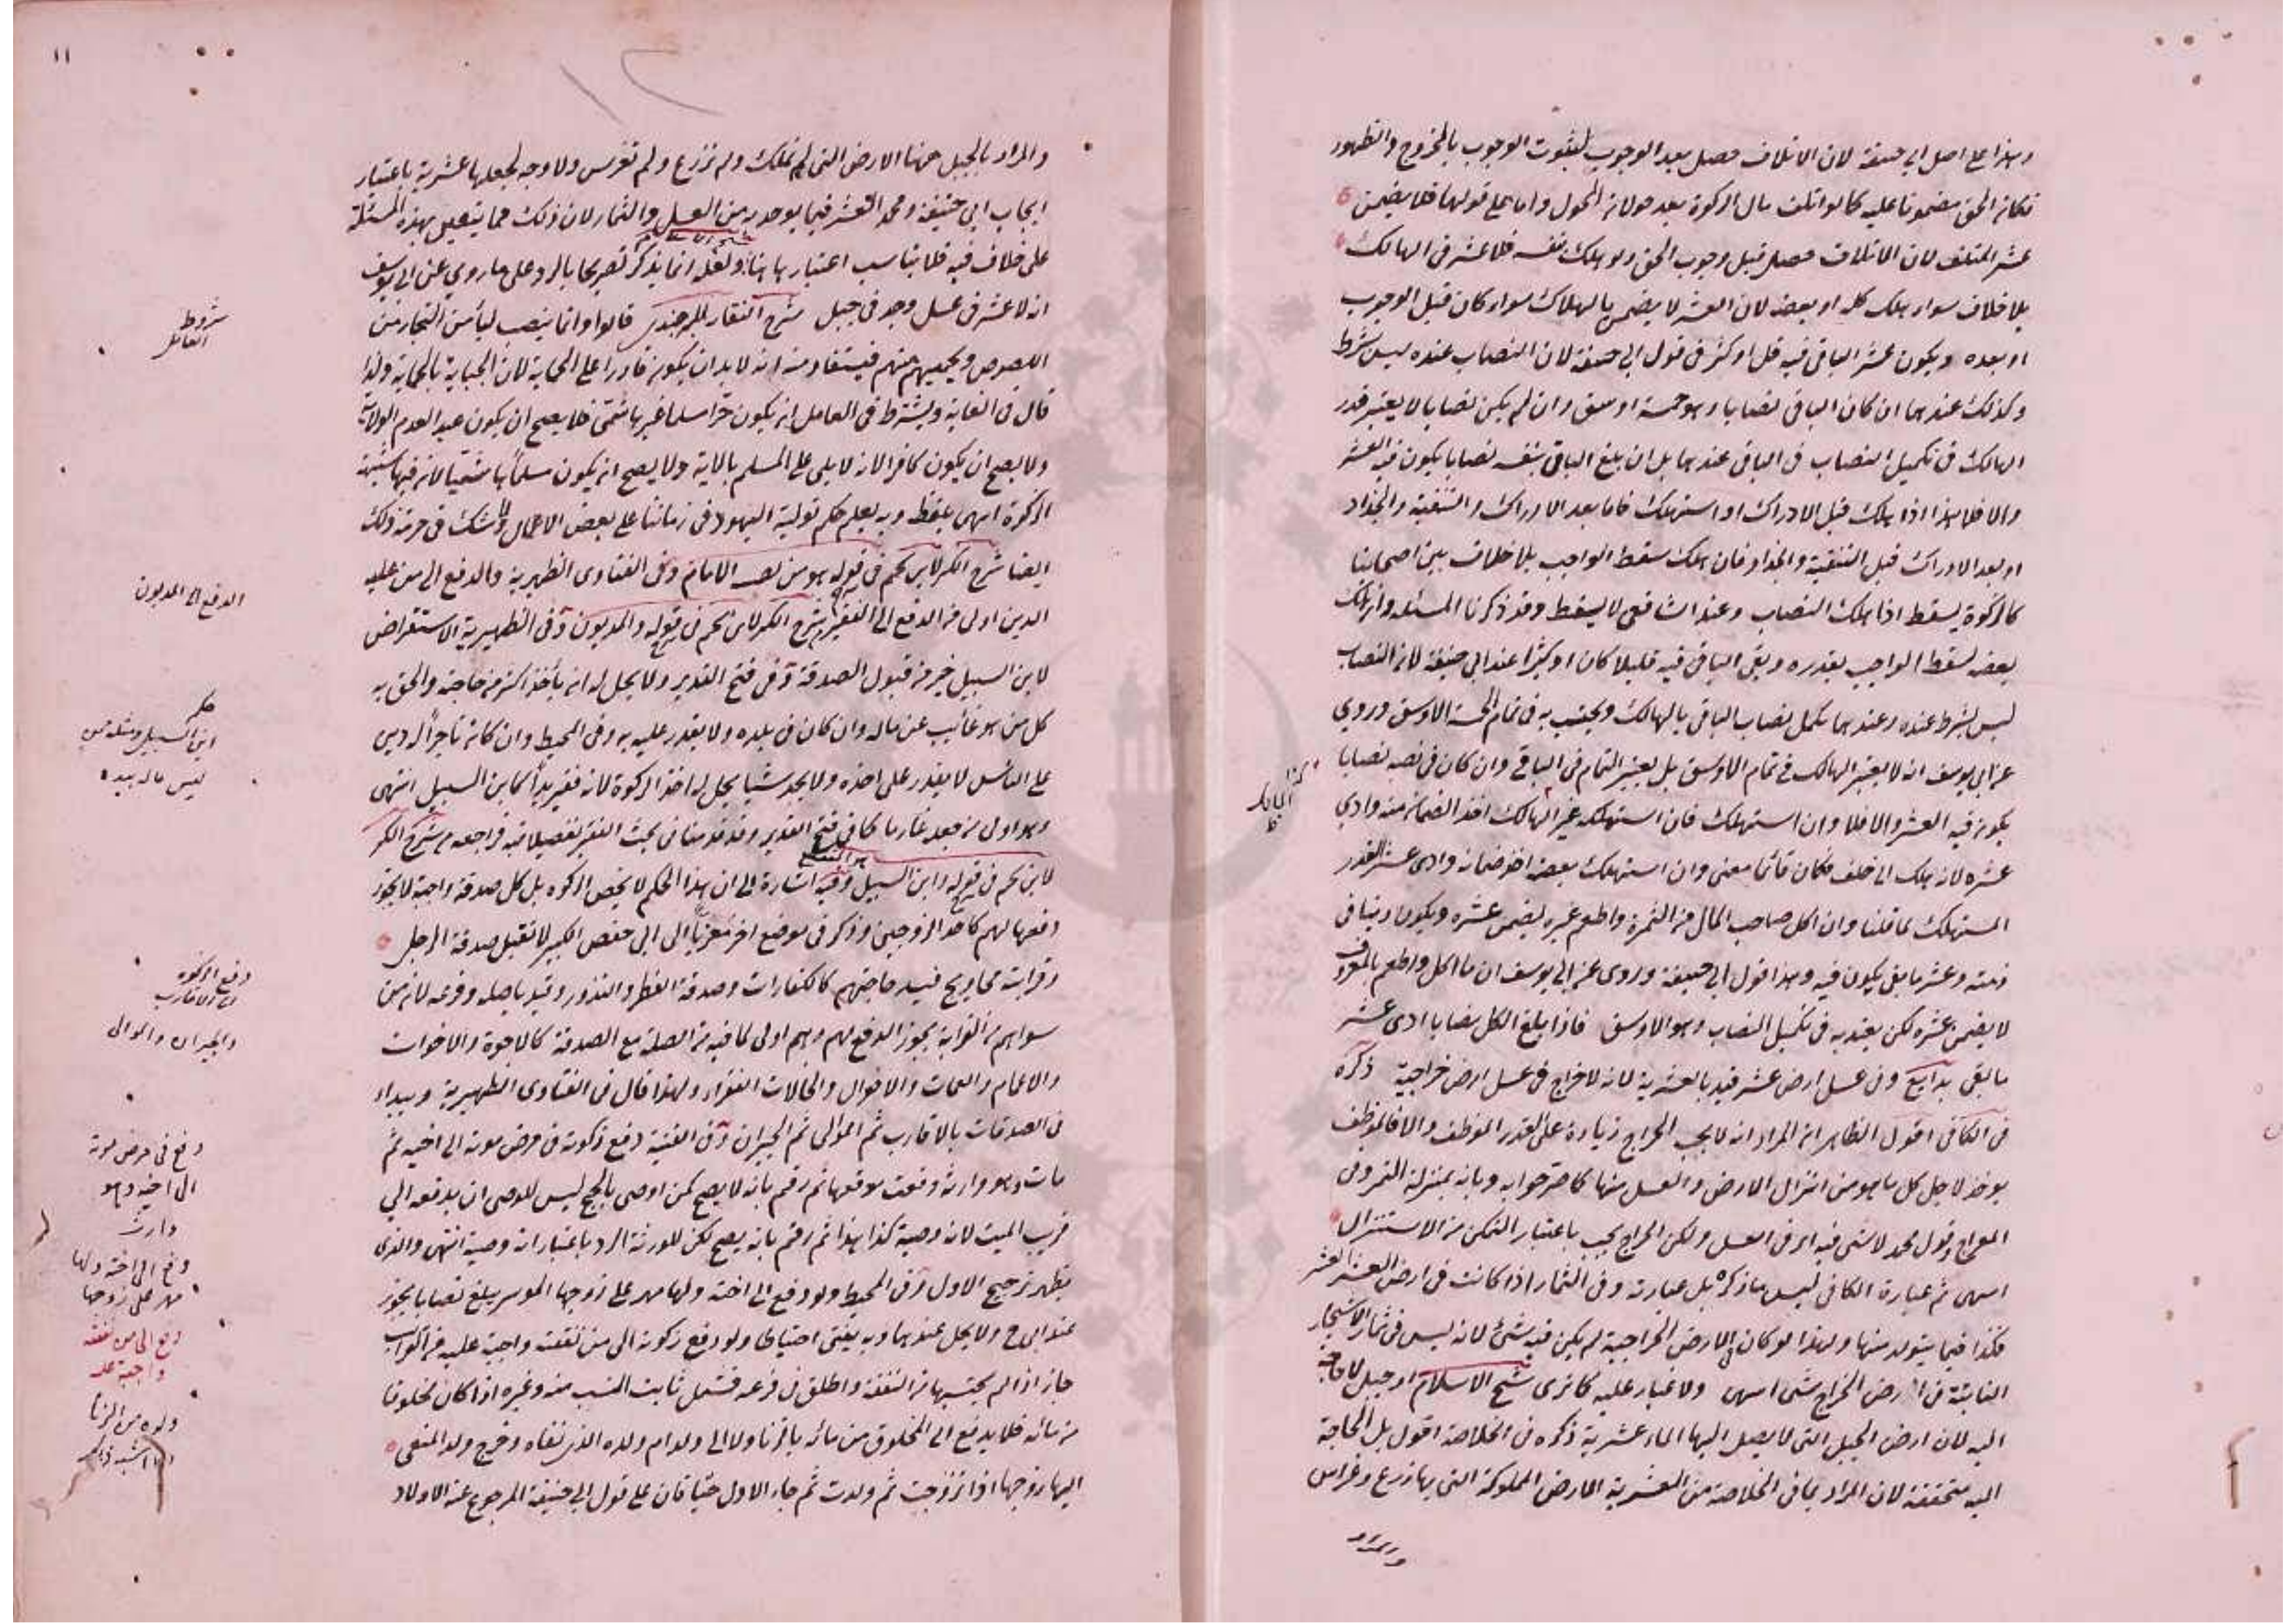 وهذا على اصل ابي حنيفة لان الاتلاف حصل بعد الوجوب لثبوت الوجوب بالخروج والظهور
فكان الحق مضمونا عليه كما لو اتلف مال الزكوة بعد حولان الحول واما على قولهما فلا يضمن
عشر المتلف لان الاتلاف حصل قبل وجوب الحق ولو هلك بنفسه فلا عشر في الهالك
بلا خلاف سواء هلك كله او بعضه لان العشر لا يضمن بالهلاك سواء كان قبل الوجوب
او بعده ويكون عشر الباقي فيه قل او كثر في قول ابي حنيفة لان النصاب عنده ليس بشرط
وكذلك عندهما ان كان الباقي نصابا وهو خمسة اوسق وان لم يكن نصابا لا يعتبر قدر
الهالك في تكميل النصاب في الباقي عندهما بل ان بلغ الباقي بنفسه نصابا يكون فيه العشر
والا فلا هذا اذا هلك قبل الادراك او استهلك فاما بعد الادراك والتنقية والجذاذ
او بعد الادراك قبل التنقية والجذاذ فان هلك سقط الواجب بلا خلاف بين اصحابنا
كالزكوة يسقط اذا هلك النصاب وعند الشافعي لا يسقط وقد ذكرنا المسئلة وان هلك
بعضه يسقط الواجب بقدره وبقى الباقي فيه قليلا كان او كثيرا عند ابي حنيفة لان النصاب
ليس بشرط عنده وعندهما يكمل نصاب الباقي بالهالك ويحتسب به في تمام الخمسة الاوسق وروي
عن ابي يوسف انه لا يعتبر الهالك في تمام الاوسق بل يعتبر التمام في الباقي وان كان في نفسه نصابا
يكون فيه العشر والا فلا وان استهلك فان استهلكه غير المالك اخذ الضمان منه وادي
عشره لانه هلك الى خلف فكان قائما معنى وان استهلك بعضه اخذ ضمانه وادى عشر القدر
المستهلك لما قلنا وان اكل صاحب المال من الثمرة واطعم غيره يضمن عشره ويكون دينا في
ذمته وعشر ما بقي يكون فيه وهذا قول ابي حنيفة وروى عن ابي يوسف ان ما اكل واطعم بالمعروف
لا يضمن عشره لكن يعتد به في تكميل النصاب وهو الاوسق فاذا بلغ الكل نصابا ادى عشر
ما بقى بدايع وفى عسل ارض عشر قيد بالعشرية لانه لا خراج في عسل ارض خراجية ذكره
في الكافي اقول الظاهر ان المراد انه لا يجب الخراج زيادة على القدر الموظف والا فالموظف
يوخذ لاجل كل ما هو من انزال الارض والعسل منها كما صرحوا به وبانه بمنزلة الثمر وفى
المعراج وقول محمد لا شى فيه اى فى العسل ولكن الخراج يجب باعتبار التمكن من الاستنزال
انتهى ثم عبارة الكافي ليس ما ذكره بل عبارته وفى الثمار اذا كانت في ارض العشر العشر
فكذا فيما يتولد منها ولهذا لو كان في الارض الخراجية لم يكن فيه شئ لانه ليس في ثمار الاشجار
النابتة في ارض الخراج شى انتهى ولا غبار عليه كما ترى شيخ الاسلام او جبل لا حاجة
اليه لان ارض الجبل التى لا يصل اليها الماء عشرية ذكره في الخلاصة اقول بل الحاجة
اليه متحققة لان المراد بما في الخلاصة من العشرية الارض المملوكة التى بها زرع وغراس
والمراد
١١
والمراد بالجبل هنا الارض التى لم تملك ولم تزرع ولم تغرس ولا وجه لجعلها عشرية باعتبار
ايجاب ابي حنيفة ومحمد العشر فيما يوجد به من العسل والثمار لان ذلك مما يتعين بهذه المسئلة
على خلاف فيه فلا يناسب اعتبارها هنا ولعله انما يذكر تصريحا بالرد على ما روي عن ابي يوسف
انه لا عشر في عسل وجد في جبل شرح النقاية للبرجندي قالوا وانما ينصب ليأمن التجار من
اللصوص ويحميهم منهم فيستفاد منه انه لا بد ان يكون قادرا على الحماية لان الجباية بالحماية ولذا
قال في الغاية ويشترط في العامل ان يكون حرا مسلما غير هاشمى فلا يصح ان يكون عبدا لعدم الولاية
ولا يصح ان يكون كافرا لانه لا يلي على المسلم بالاية ولا يصح ان يكون مسلما هاشميا لان فيها شبهة
الزكوة انتهى بلفظه وبه يعلم حكم تولية اليهود في زماننا على بعض الاعمال ولا شك في حرمة ذلك
ايضا شرح الكنز لابن نجيم في قوله هو من نصبه الامام وفى الفتاوى الظهيرية والدفع الى من عليه
الدين اولى من الدفع الى الفقير شرح الكنز لابن نجيم في قوله والمديون وفى الظهيرية الاستقراض
لابن السبيل خير من قبول الصدقة وفى فتح القدير ولا يحل له ان يأخذ اكثر من حاجته والحق به
كل من هو غائب عن ماله وان كان في بلده ولا يقدر عليه به وفى المحيط وان كان تاجرا له دين
على الناس لا يقدر على اخذه ولا يجد شيئا يحل له اخذ الزكوة لانه فقير يدا كابن السبيل انتهى
وهو اولى من جعله غارما كما في فتح القدير وقد قدمنا في بحث الفقير تفصيلا فيه فراجعه شرح الكنز
لابن نجيم في قوله وابن السبيل وفيه اشارة الى ان هذا الحكم لا يخص الزكوة بل كل صدقة واجبة لا يجوز
دفعها لهم كاحد الزوجين وذكر في موضع اخر معزيا الى ابي حفص الكبير لا تقبل صدقة الرجل
وقرابته محاويج فيسد حاجتهم كالكفارات وصدقة الفطر والنذور وقيد باصله وفرعه لان من
سواهم من القرابة يجوز الدفع لهم وهم اولى لما فيه من الصلة مع الصدقة كالاخوة والاخوات
والاعمام والعمات والاخوال والخالات الفقراء ولهذا قال في الفتاوى الظهيرية ويبداء
فى الصدقات بالاقارب ثم الموالى ثم الجيران وفى القنية دفع زكوته في مرض موته الى اخيه ثم
مات وهو وارثه وقعت موقعها ثم رقم بانه لا يصح كمن اوصى بالحج ليس للوصى ان يدفعه الى
قريب الميت لانه وصية كذا هذا ثم رقم بانه يصح لكن للورثة الرد باعتبار انه وصية انتهى والذى
يظهر ترجيح الاول وفى المحيط ولو دفع الى اخته ولها مهر على زوجها الموسر يبلغ نصابا يجوز
عند ابي ح ولا يحل عندهما وبه يفتى احتياطا ولو دفع زكوته الى من نفقته واجبة عليه من القرايب
جاز اذا لم يحتسبها من النفقة واطلق في فرعه فشمل ثابت النسب منه وغيره اذا كان مخلوقا
من مائه فلا يدفع الى المخلوق من مائه بالزنا ولا الى ولد ام ولده الذى نفاه وخرج ولد المنعى
اليها زوجها اذا تزوجت ثم ولدت ثم جاء الاول حيا فان على قول ابي حنيفة المرجوع عنه الاولاد
شروط
العامل
الدفع الى المديون
حكم
ابن السبيل ومثله من
ليس ماله بيده
دفع الزكوة
الى الاقارب
والجيران والموالى
دفع في مرض موته
الى اخيه وهو
وارث
دفع الى اخته ولها
مهر على زوجها
دفع الى من نفقته
واجبة عليه
ولده من الزنا